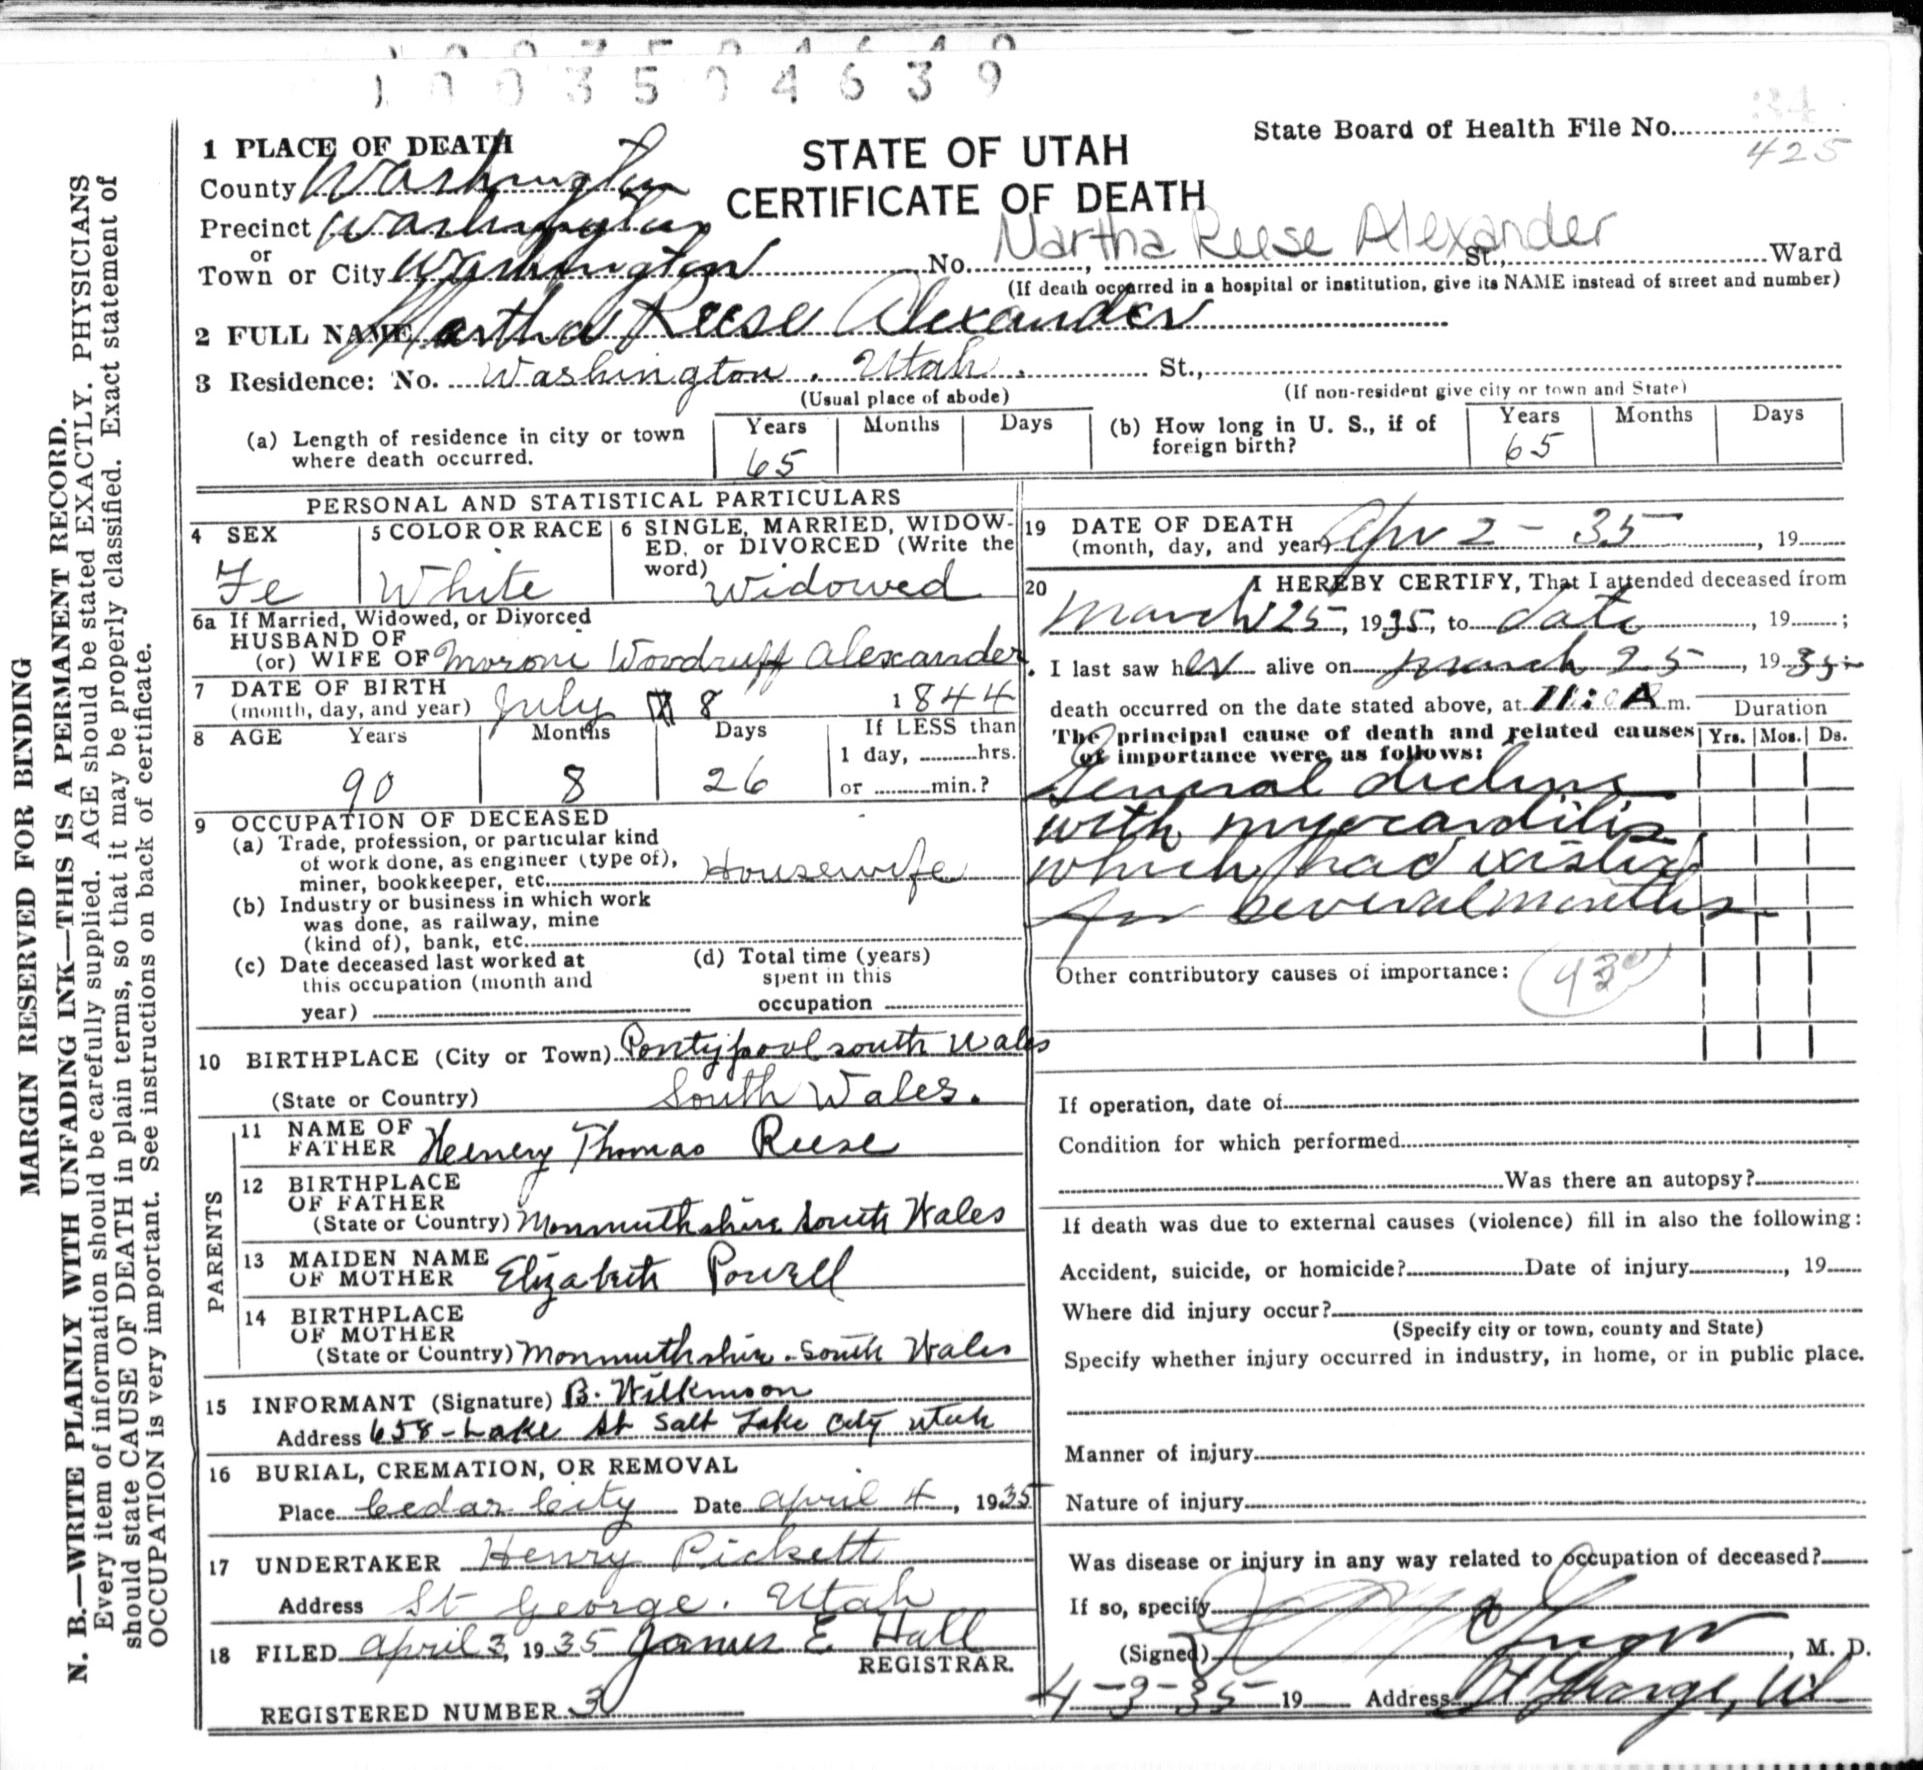 1003504639
State Board of Health File No. 34
425
STATE OF UTAH
CERTIFICATE OF DEATH
1 PLACE OF DEATH
County Washington
Precinct Washington
or
Town or City Washington No. St., Ward
Martha Reese Alexander
(If death occurred in a hospital or institution, give its NAME instead of street and number)
2 FULL NAME Martha Reese Alexander
3 Residence: No. Washington, Utah. St.,
(Usual place of abode) (If non-resident give city or town and State)
(a) Length of residence in city or town where death occurred. Years 65 Months Days
(b) How long in U. S., if of foreign birth? Years 65 Months Days
PERSONAL AND STATISTICAL PARTICULARS
4 SEX Fe
5 COLOR OR RACE White
6 SINGLE, MARRIED, WIDOWED, or DIVORCED (Write the word) Widowed
6a If Married, Widowed, or Divorced
HUSBAND OF
(or) WIFE OF Moroni Woodruff Alexander
7 DATE OF BIRTH
(month, day, and year) July 8 1844
8 AGE Years 90 Months 8 Days 26 If LESS than
1 day, hrs.
or min.?
9 OCCUPATION OF DECEASED
(a) Trade, profession, or particular kind
of work done, as engineer (type of),
miner, bookkeeper, etc. Housewife
(b) Industry or business in which work
was done, as railway, mine
(kind of), bank, etc.
(c) Date deceased last worked at
this occupation (month and
year)
(d) Total time (years)
spent in this
occupation
10 BIRTHPLACE (City or Town) Pontypool south Wales
(State or Country) South Wales.
PARENTS
11 NAME OF
FATHER Heenery Thomas Reese
12 BIRTHPLACE
OF FATHER
(State or Country) Monmuthshire South Wales
13 MAIDEN NAME
OF MOTHER Elizabeth Powell
14 BIRTHPLACE
OF MOTHER
(State or Country) Monmuthshire - South Wales
15 INFORMANT (Signature) B. Wilkinson
Address 658 - Lake St Salt Lake City Utah
16 BURIAL, CREMATION, OR REMOVAL
Place Cedar City Date April 4, 1935
17 UNDERTAKER Henry Pickett
Address St George. Utah
18 FILED April 3, 1935 James E. Hall
REGISTRAR.
REGISTERED NUMBER 3
19 DATE OF DEATH
(month, day, and year) Apr 2 - 35, 19
20 I HEREBY CERTIFY, That I attended deceased from
March 25, 1935, to date, 19 ;
I last saw her alive on March 25, 1935
death occurred on the date stated above, at 11: A m.
Duration
The principal cause of death and related causes
of importance were as follows:
Yrs. Mos. Ds.
General decline
with myocarditis
which had existed
for several months
Other contributory causes of importance:
If operation, date of
Condition for which performed
Was there an autopsy?
If death was due to external causes (violence) fill in also the following:
Accident, suicide, or homicide? Date of injury , 19
Where did injury occur?
(Specify city or town, county and State)
Specify whether injury occurred in industry, in home, or in public place.
Manner of injury
Nature of injury
Was disease or injury in any way related to occupation of deceased?
If so, specify
(Signed) , M. D.
4-3-35 19 Address St George, Ut
MARGIN RESERVED FOR BINDING
N. B.—WRITE PLAINLY WITH UNFADING INK—THIS IS A PERMANENT RECORD.
Every item of information should be carefully supplied. AGE should be stated EXACTLY. PHYSICIANS
should state CAUSE OF DEATH in plain terms, so that it may be properly classified. Exact statement of
OCCUPATION is very important. See instructions on back of certificate.